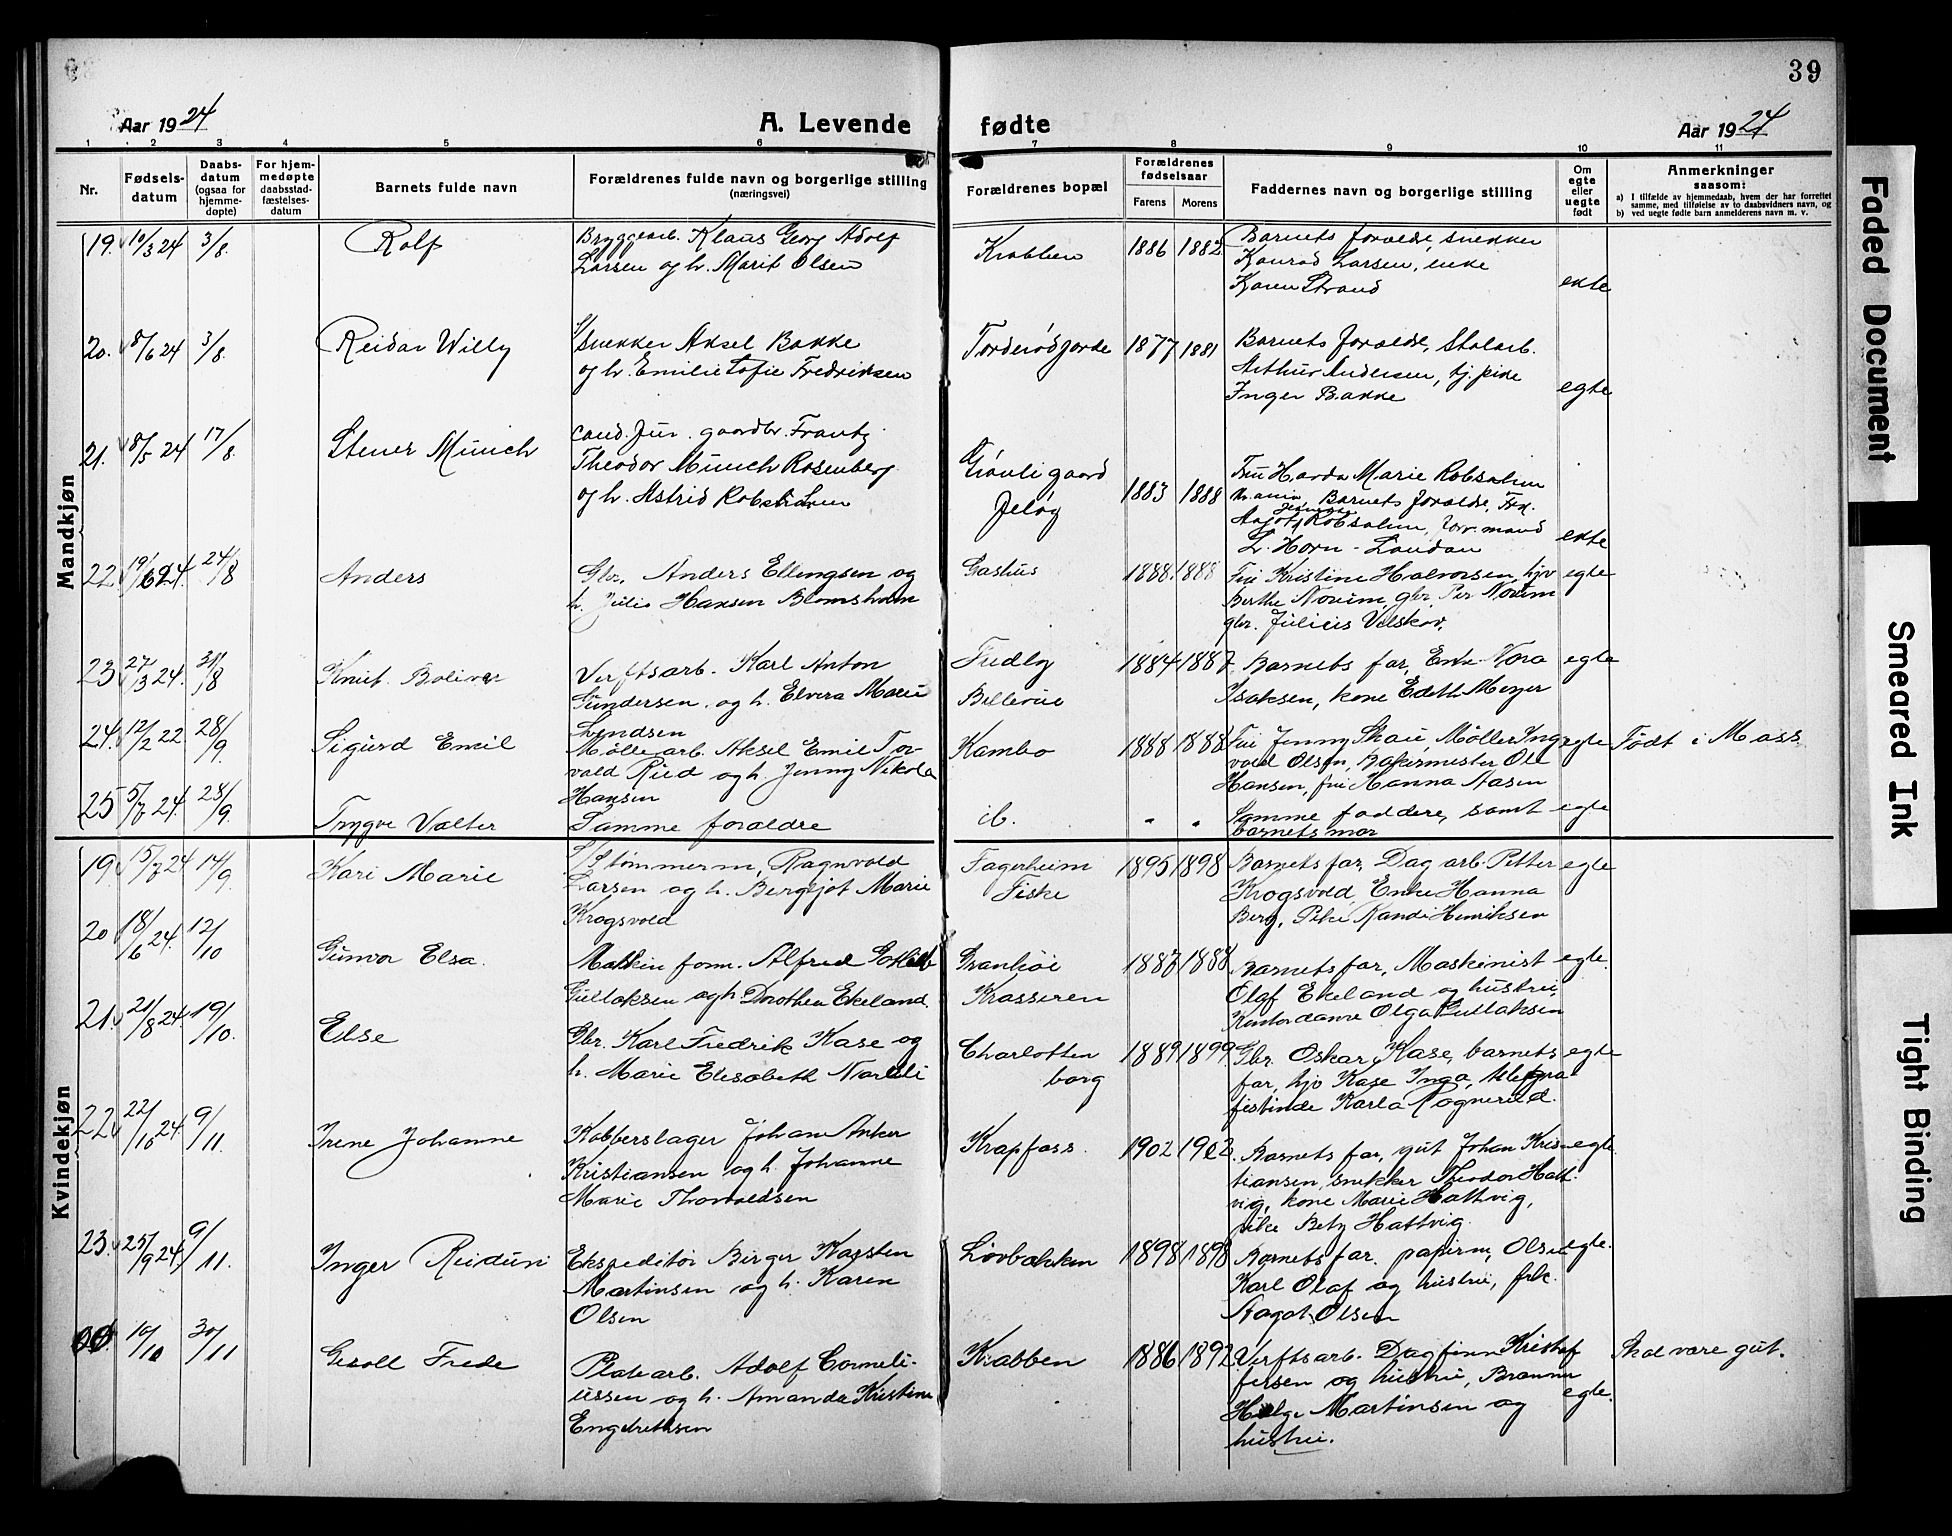 39
Aar 1924
A. Levende fødte
Aar 1924
1 2 3 4 5 6 7 8 9 10 11
Nr.
Fødsels-
datum
Daabs-
datum
(ogsaa for
hjemme-
døpte)
For hjem-
medøpte
daabsstad-
fæstelses-
datum
Barnets fulde navn
Forældrenes fulde navn og borgerlige stilling
(næringsvei)
Forældrenes bopæl
Forældrenes
fødselsaar
Farens
Morens
Faddernes navn og borgerlige stilling
Om
egte
eller
uegte
født
Anmerkninger
saasom:
a) I tilfælde av hjemmedaab, hvem der har forrettet
samme, med tilføielse av to daabsvidners navn, og
b) ved uegte fødte barn anmelderens navn m. v.
Mandkjøn
19. 10/3 24 3/8. Rolf
Bryggearb. Klaus Georg Adolf
Larsen og h. Marit Olsen
Krabben 1886 1882
Barnets forælde, snekker
Konrad Larsen, enke
Karen Strand
ekte
20. 8/6 24 3/8. Reidar Willy
Snekker Aksel Bakke
og h. Emilie Sofie Fredriksen
Torderødgjorde 1877 1881
Barnets forælde, Stalarb.
Arthur Andersen, tj. pike
Inger Bakke
egte
21. 8/5 24 17/8. Stener Münich
cand. jur. gaardbr. Frantz
Theodor Münch Rosenberg
og h. Astrid Robsahm
Grønli gaard
Jeløy
1883 1888
Fru Harda Marie Robsahm
Barnets forælde, Frk.
Aagot Robsahm,
L. Horn-
ekte
22. 19/6 24. 24/8 Anders
Gbr. Anders Ellingsen og
h. Julie Hansen Blomsholm
Gashus 1888. 1888
Fru Kristine Halvorsen, hjv
Berthe Novim, gbr. Per Novim
gbr. Julius Velskov.
egte
23. 27/3 24. 31/8 Knut Boliver
Verftsarb. Karl Anton
Gundersen. og h. Elvera Marie
Lendsen
Fredly
Bellevue
1884 1887
Barnets far, Enke Nora
Isaksen, kone Edith Meyer
egte
24. 12/2 22. 28/9 Sigurd Emil
Møllearb. Aksel Emil Tor-
vald Rud og h. Jenny Nikola
Hansen
Kambo 1888 1888
Fru Jenny Skau, Møller Ing
vald Olsen, Bakermester Ole
Hansen, fru Hanna Aasen
egte Født i Moss
25. 5/7 24. 28/9. Trygve Valter
Samme forældre
ib. " "
Samme faddere, samt
barnets mor
egte
Kvindekjøn
19. 15/7 24 14/9. Kari Marie
Tømmerm. Ragnvald
Larsen og h. Bergljot Marie
Krogsvold
Fagerheim
Fiske
1895 1898
Barnets far, Dag arb. Petter
Krogsvold, Enke Hanna
Berg, Pike Randi Henriksen
egte
20 18/6 24. 12/10 Gunvor Elsa.
Maskin form. Alfred Gotlieb
Gullaksen og h. Dorothea Ekeland.
Granhøi
Krasseren
1887 1888
Barnets far, Maskinist
Olaf Ekeland og hustru,
Kontordame Olga Gullaksen
egte.
21. 21/8 24. 19/10. Else
Gbr. Karl Fredrik Kase og
h. Marie Elisabeth Narlili
Charlotten
borg
1889 1899.
Gbr. Oskar Kase, barnets
far, hjv Kase Inga, telegra
fistinde Karla Rognerud.
egte
22. 22/10 24. 9/11. Irene Johanne
Kobberslager Johan Anker
Kristiansen og h. Johanne
Marie Thorvaldsen
Krapfoss. 1902 1902.
Barnets far, gut Johan Kris
tiansen, snekker Theodor Hatt
vig, kone Marie Hattvig,
pike Betzy Hattvig.
egte.
23. 25/9 24. 9/11. Inger Reidun
Ekspeditør Birger Karsten
Martinsen og h. Karen
Olsen
Løvbakken 1898 1898
Barnets far. papirm. Olsen
Karl Olaf og hustru, frk.
Aagot Olsen
egte.
10/10 30/11 Geroll Frede
Platearb. Adolf Corneli-
ussen og h. Amanda Kristine
Engebretsen
Krabben 1886 1892
Verftsarb. Dagfinn Kristof
fersen og hustru,
Helge Martinsen og
hustru.
egte.
Skal være gut.
Faded Document
Smeared Ink
Tight Binding